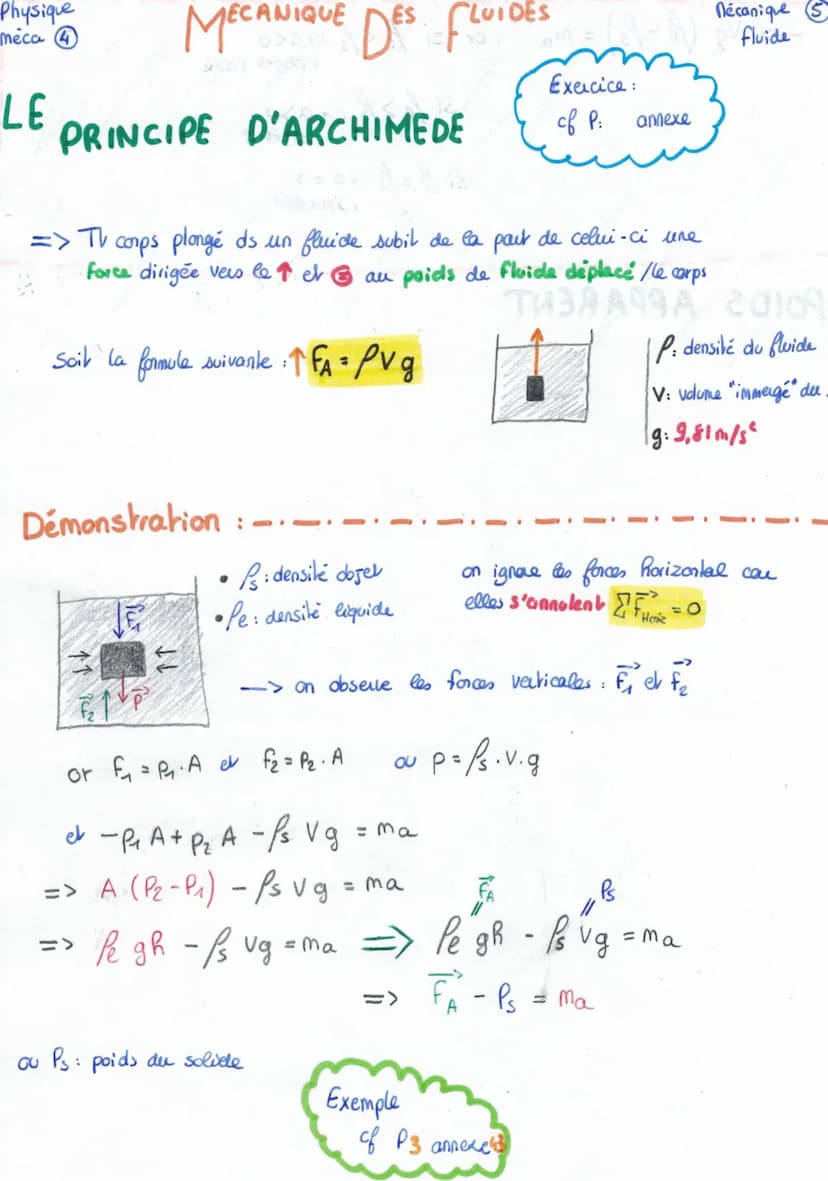 Physique
méca ④
MECANIQUE DES FLUIDES
Mécanique ⑤
fluide
LE PRINCIPE D'ARCHIMEDE
Exercice :
cf P: annexe
=> Tt corps plongé ds un fluide subit de la part de celui-ci une
Force dirigée vers le ↑ et au poids de fluide déplacé /le corps
Soit la formule suivante : ↑ F_A = ρVg
ρ: densité du fluide
V: volume "immergé" du
g: 9,81 m/s²
Démonstration :
• ρs : densité objet
• ρe : densité liquide
on ignore les forces horizontal car
elles s'annulent ΣF→Horiz = 0
F₁→
F₂→
P→
—> on observe les forces verticales : F₁→ et F₂→
or F₁ = P₁ . A et F₂ = P₂ . A ou p = ρs . V . g
et -P₁ A + P₂ A - ρs V g = ma
=> A (P₂ - P₁) - ρs V g = ma
F_A→ Ps
=> ρe gh - ρs Vg = ma => ρe gh - ρs Vg = ma
=> F_A→ - Ps = ma
ou Ps : poids du solide
Exemple
cf P3 annexe
POIDS APPARENT